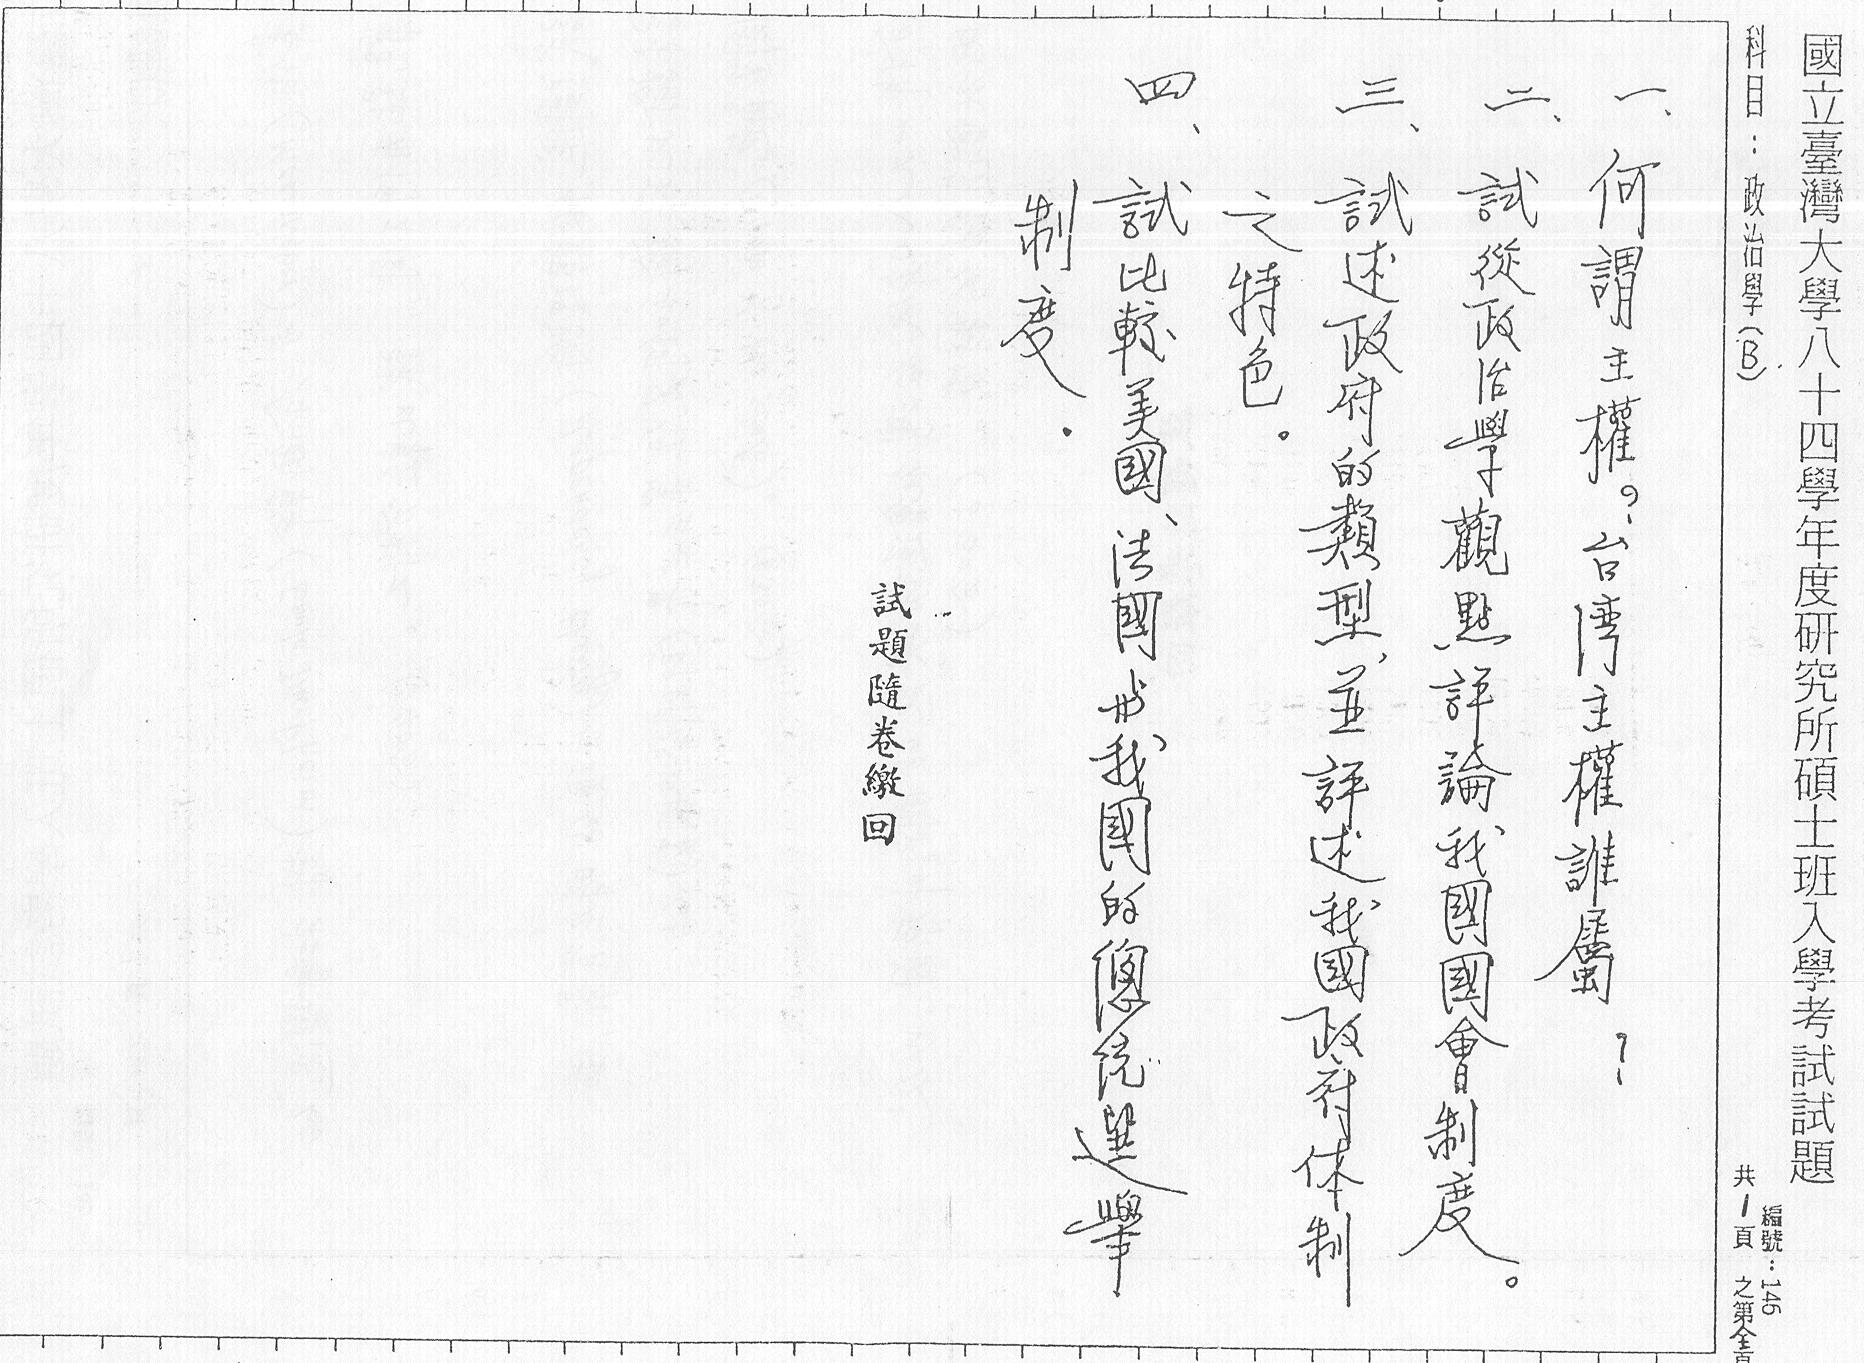 國立臺灣大學八十四學年度研究所碩士班入學考試試題
編號：146
科目：政治學(B)
共1頁 之第全頁
一、何謂主權？台湾主權誰屬？
二、試從政治學觀點評論我國國會制度。
三、試述政府的類型，並評述我國政府体制
之特色。
四、試比較美國、法國與我國的總統選舉
制度。
試題隨卷繳回